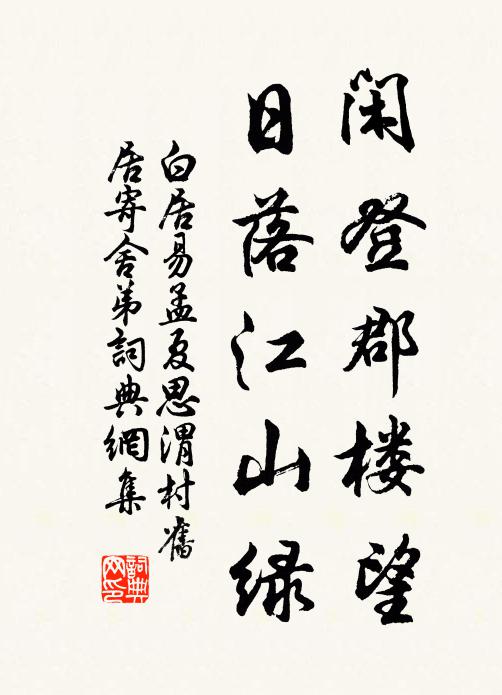 闲登郡楼望
日落江山绿
白居易孟夏思渭村舊
居寄舍弟詞典網集
詞典网印